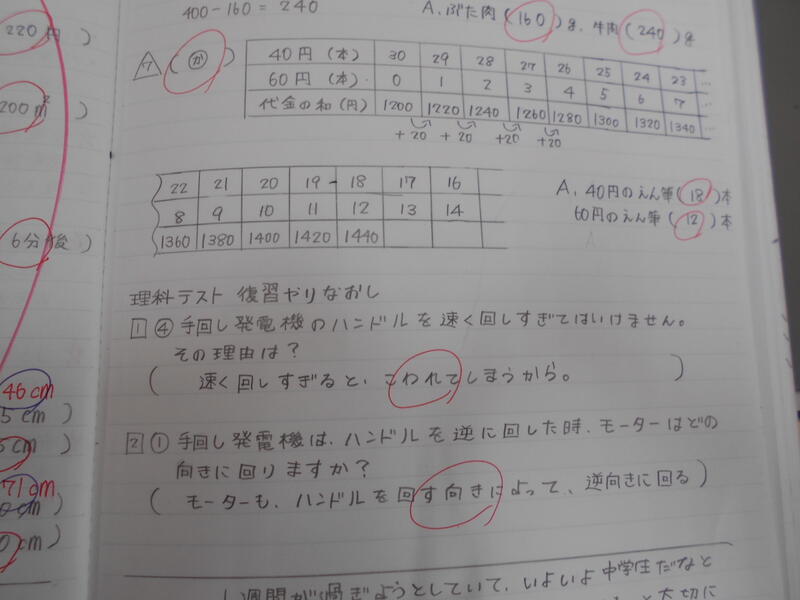 220円)
200m²)
6分後)
46cm
5cm)
cm)
71cm
0cm)
0cm)
400-160=240
A. ぶた肉(160)g. 牛肉(240)g
7 (か)
40円(本) 30 29 28 27 26 25 24 23 …
60円(本) 0 1 2 3 4 5 6 7 …
代金の和(円) 1200 1220 1240 1260 1280 1300 1320 1340 …
+20 +20 +20 +20
22 21 20 19 18 17 16
8 9 10 11 12 13 14
1360 1380 1400 1420 1440
A. 40円のえん筆(18)本
60円のえん筆(12)本
理科テスト 復習やりなおし
1 ④ 手回し発電機のハンドルを速く回しすぎてはいけません。
その理由は?
( 速く回しすぎると、こわれてしまうから。 )
2 ① 手回し発電機は、ハンドルを逆に回した時、モーターはどの
向きに回りますか?
( モーターも、ハンドルを回す向きによって、逆向きに回る )
1週間が過ぎようとしていて、いよいよ中学生だなと
大切に